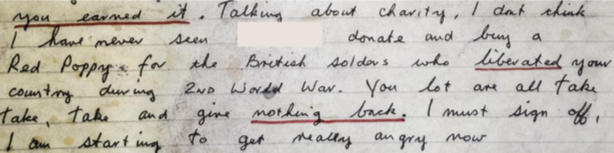 you earned it. Talking about charity, I dont think
I have never seen donate and buy a
Red Poppy for the British soldors who liberated your
country during 2ND World War. You lot are all take
take, take and give nothing back. I must sign off,
I am starting to get really angry now